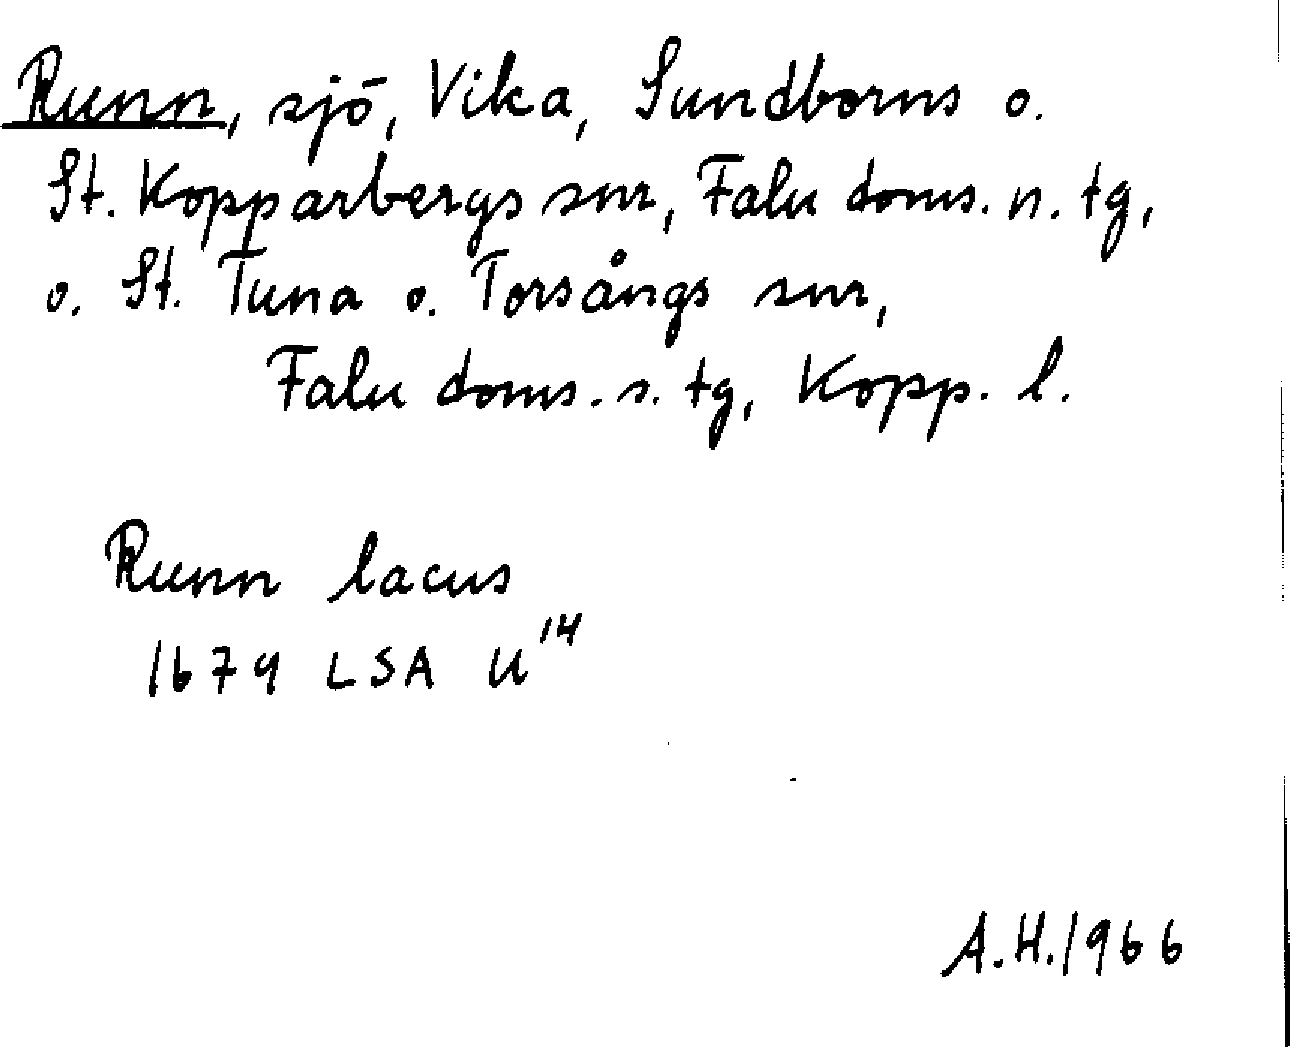 Runn, sjö, Vika, Sundborns o.
St. Kopparbergs snr, Falu doms. n. tg,
o. St. Tuna o. Torsångs snr,
Falu doms. s. tg, Kopp. l.
Runn lacus
1679 LSA U¹⁴
A.H. 1966